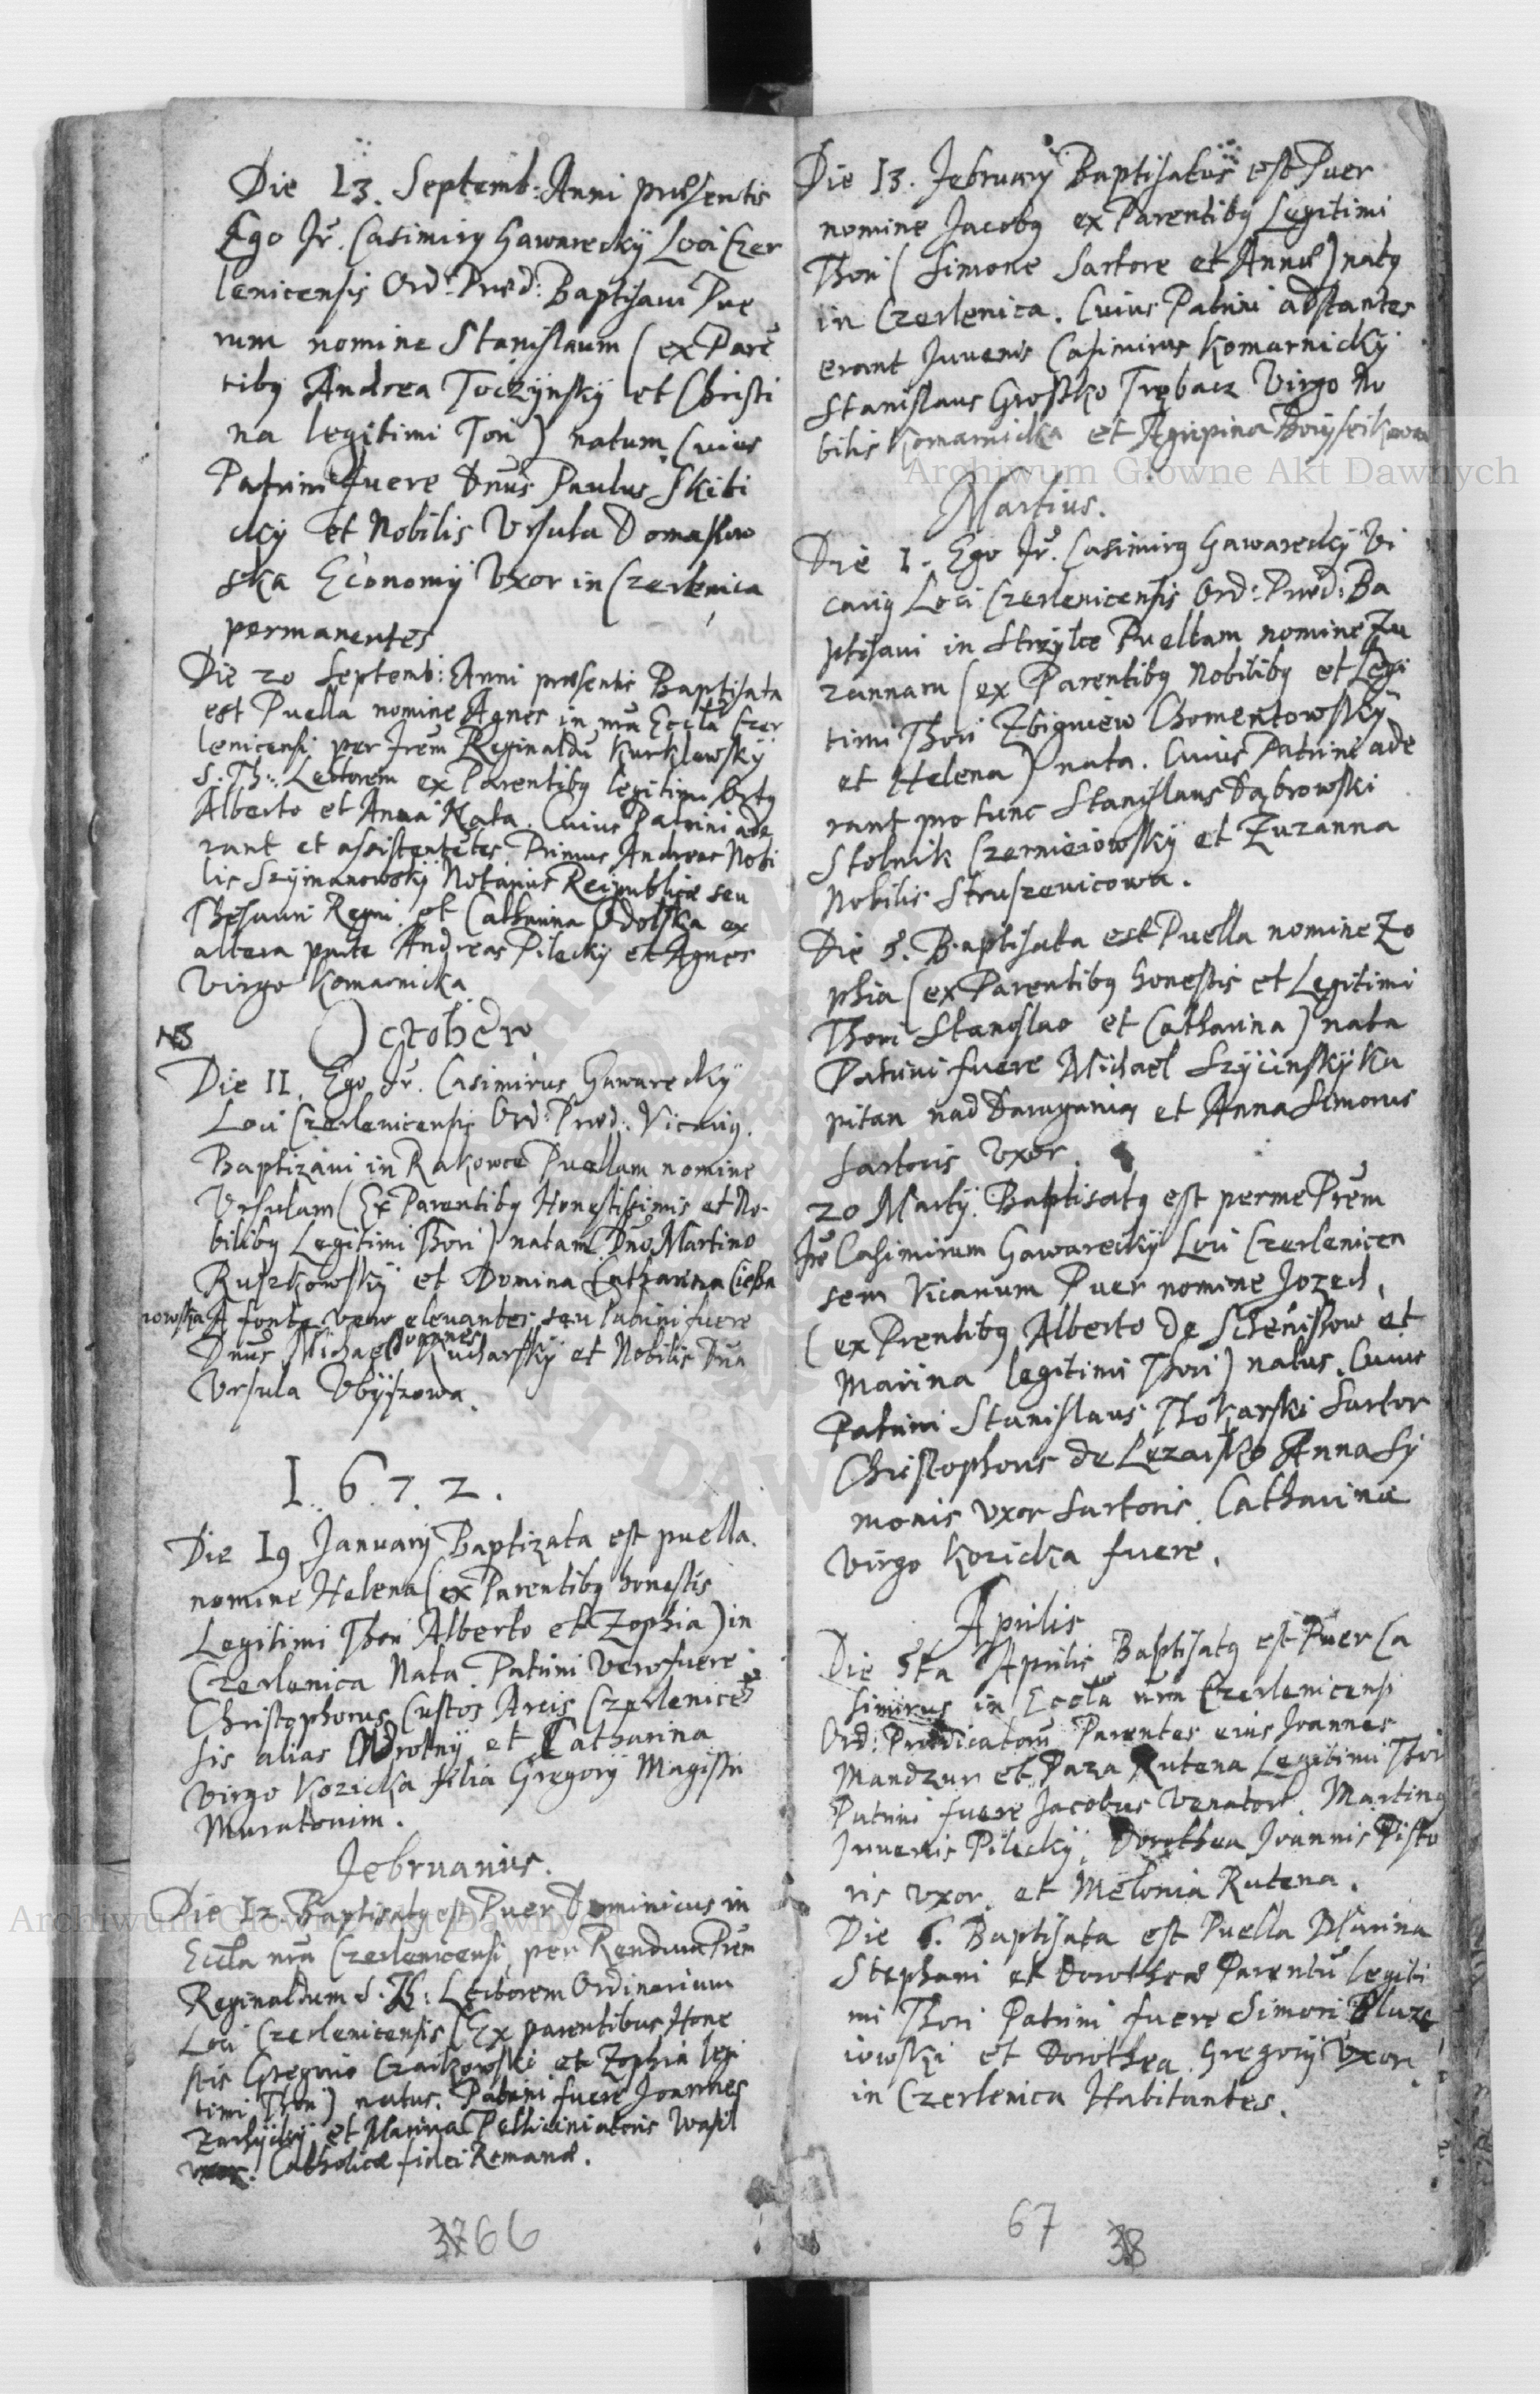 Die 13. Septemb: Anni præsentis
Ego Fr. Casimirg Gawarecky Loci Czer
lenicensis Ord: Præd: Baptisavi Pue
rum nomine Stanislaum (ex Parē
tibg Andrea Toczynsky et Christi
na legitimi Tori) natum, Cuius
Patrini fuere Dnus Paulus Skibi
cky et Nobilis Vrsula Domaslow
ska Economij Vxor in Czerlenica
permanentes
Die 20 Septemb: Anni præsentis Baptisata
est Puella nomine Agnes in nrā Eccla Czer
lenicensi per Frem Reginaldū Kurklewsky
S. Th: Lectorem ex Parentibg legitimi
Alberto et Anna Nata. Cuius Patrini ade
rant et assistentes Primus Andreas Nobi
lis Szymanowsky Notarius Reipublicæ seu
Thesauri Regni et Catharina Odolska ex
altera parte Andreas Pilecky et Agnes
Virgo Komarnicka
NB Octobero
Die 11. Ego Fr. Casimirus Gawarecky
Loci Czerlenicensis Ord: Præd: Vicarig.
Baptizavi in Rakowce Puellam nomine
Vrsulam (Ex Parentibg Honestissimis et No-
bilibg Legitimi Thori) natam Dno Martino
Ruszkowsky et Domina Catharina Ciesza
nowska A fonte vero elevantes seu Patrini fuere
Dnus Michael Joannes Kucharsky et Nobilis Dna
Vrsula Vbyszowa.
1.6.7.2.
Die 19 January Baptizata est puella
nomine Helena (ex Parentibg honestis
Legitimi Thori Alberto et Zophia) in
Czerlenica Nata. Patrini vero fuere
Christophorus Custos Arcis Czerlenicē
sis alias Wrotny et Catharina
Virgo Kozicka filia Gregory Magistri
Muratorum.
Februarius.
Die 12 Baptisatg est Puer Dominicus in
Eccla nrā Czerlenicensi, per Rendum Prem
Reginaldum S. Th: Lectorem Ordinarium
Loci Czerlenicensis (Ex parentibus Hone
stis Gregorio Czaikowski et Zophia legi
timi Thori) natus. Patrini fuere Joannes
et Marina Pelliciniatoris Wasil
vxor. Catholicæ fidei Romanæ.
37 66
Die 13. February Baptisatus est Puer
nomine Jacobg ex Parentibg Legitimi
Thori (Simone Sartore et Annæ) natg
in Czerlenica. Cuius Patrini adstantes
erant Juvenis Casimirus Komarnicky
Stanislaus Grostko Trębacz Virgo No
bilis Komarnicka et Agripina
Archiwum Główne Akt Dawnych
Martius.
Die 1. Ego Fr. Casimirg Gawarecky Vi
carig Loci Czerlenicensis Ord: Præd: Ba
ptisavi in Strzylce Puellam nomine Zu
zannam (ex Parentibg Nobilibg et Legi
timi Thori Zbigniew Chomentowsky
et Helena) nata. Cuius Patrini ade
rant pro tunc Stanislaus Dąbrowski
Stolnik Czerniejowsky et Zuzanna
Nobilis Struszewicowa.
Die 8. Baptisata est Puella nomine Zo
phia (ex Parentibg honestis et Legitimi
Thori Stanislao et Catharina) nata
Patrini fuere Michael Szycinsky Ka
pitan nad Daraganią et Anna Simonis
Sartoris Vxor.
20 Marty. Baptisatg est per me Prem
Fr Casimirum Gawarecky Loci Czerlenicen
sem Vicarium Puer nomine Jozeph,
(ex Prentibg Alberto de Schenissow et
Marina legitimi Thori) natus. Cuius
Patrini Stanislaus Thokarski Sartor
Christophorus de Lezaisko Anna Sy
monis Vxor Sartoris. Catharina
Virgo Kozicka fuere.
Aprilis
Die 5ta Aprilis Baptisatg est Puer Ca
simirus in Eccla nra Czerlenicensi
Ord: Prædicatorū Parentes eius Joannes
Mandzur et Paza Rutena Legitimi Thori
Patrini fuere Jacobus Venator. Marting
Juvenis Pilecky, Dorothea Joannis Pisto
ris vxor. et Melonia Rutena.
Die 6. Baptisata est Puella Marina
Stephani et Dorotheæ Parentū legiti
mi Thori Patrini fuere Simon Pluze
iowski et Dorothea Gregorij Vxor.
in Czerlenica Habitantes.
67 38
Archiwum Główne Akt Dawnych